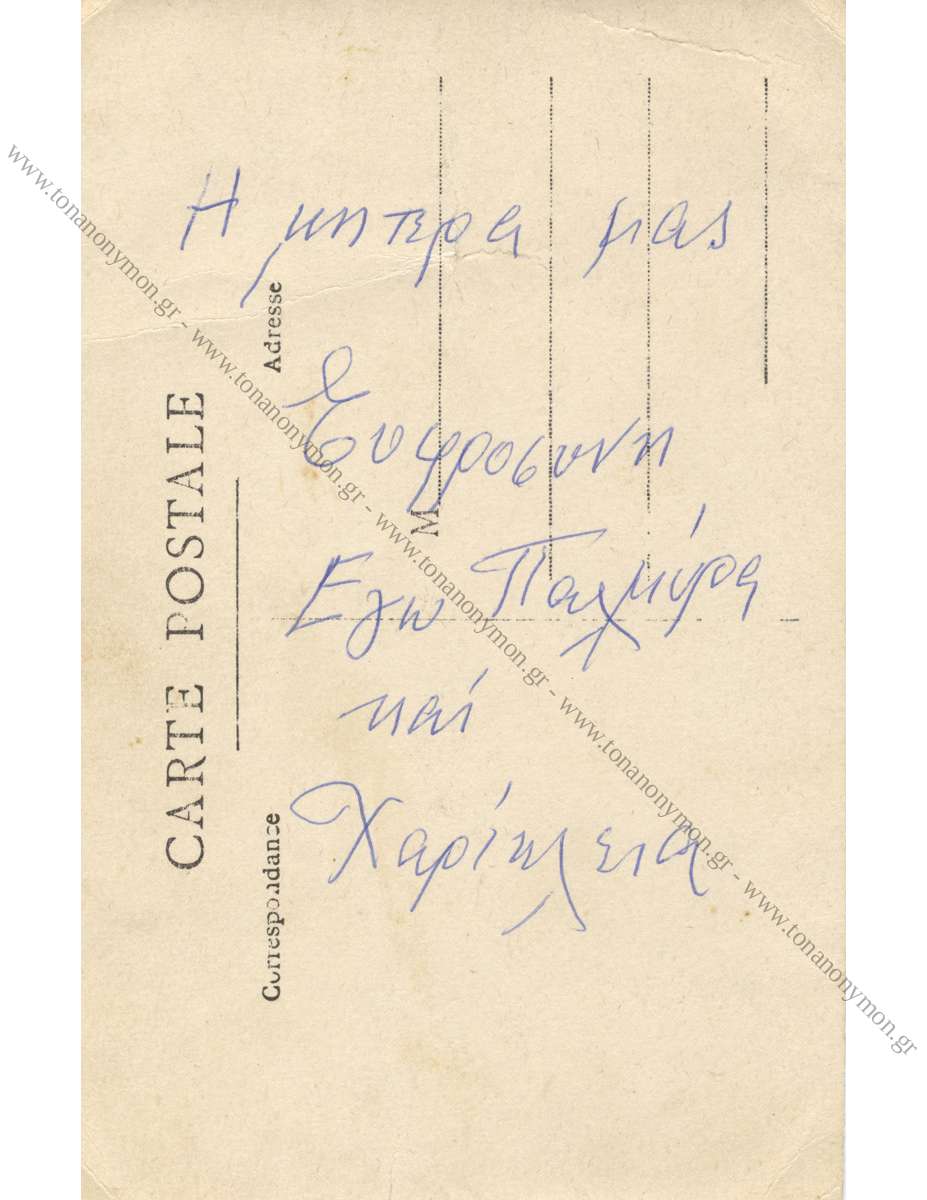 Η μητερα μας
Ευφροσυνη
Εγω Παλμύρα
και
Χαρίκλεια
CARTE POSTALE
Correspondance
Adresse
M
www.tonanonymon.gr - www.tonanonymon.gr - www.tonanonymon.gr - www.tonanonymon.gr - www.tonanonymon.gr